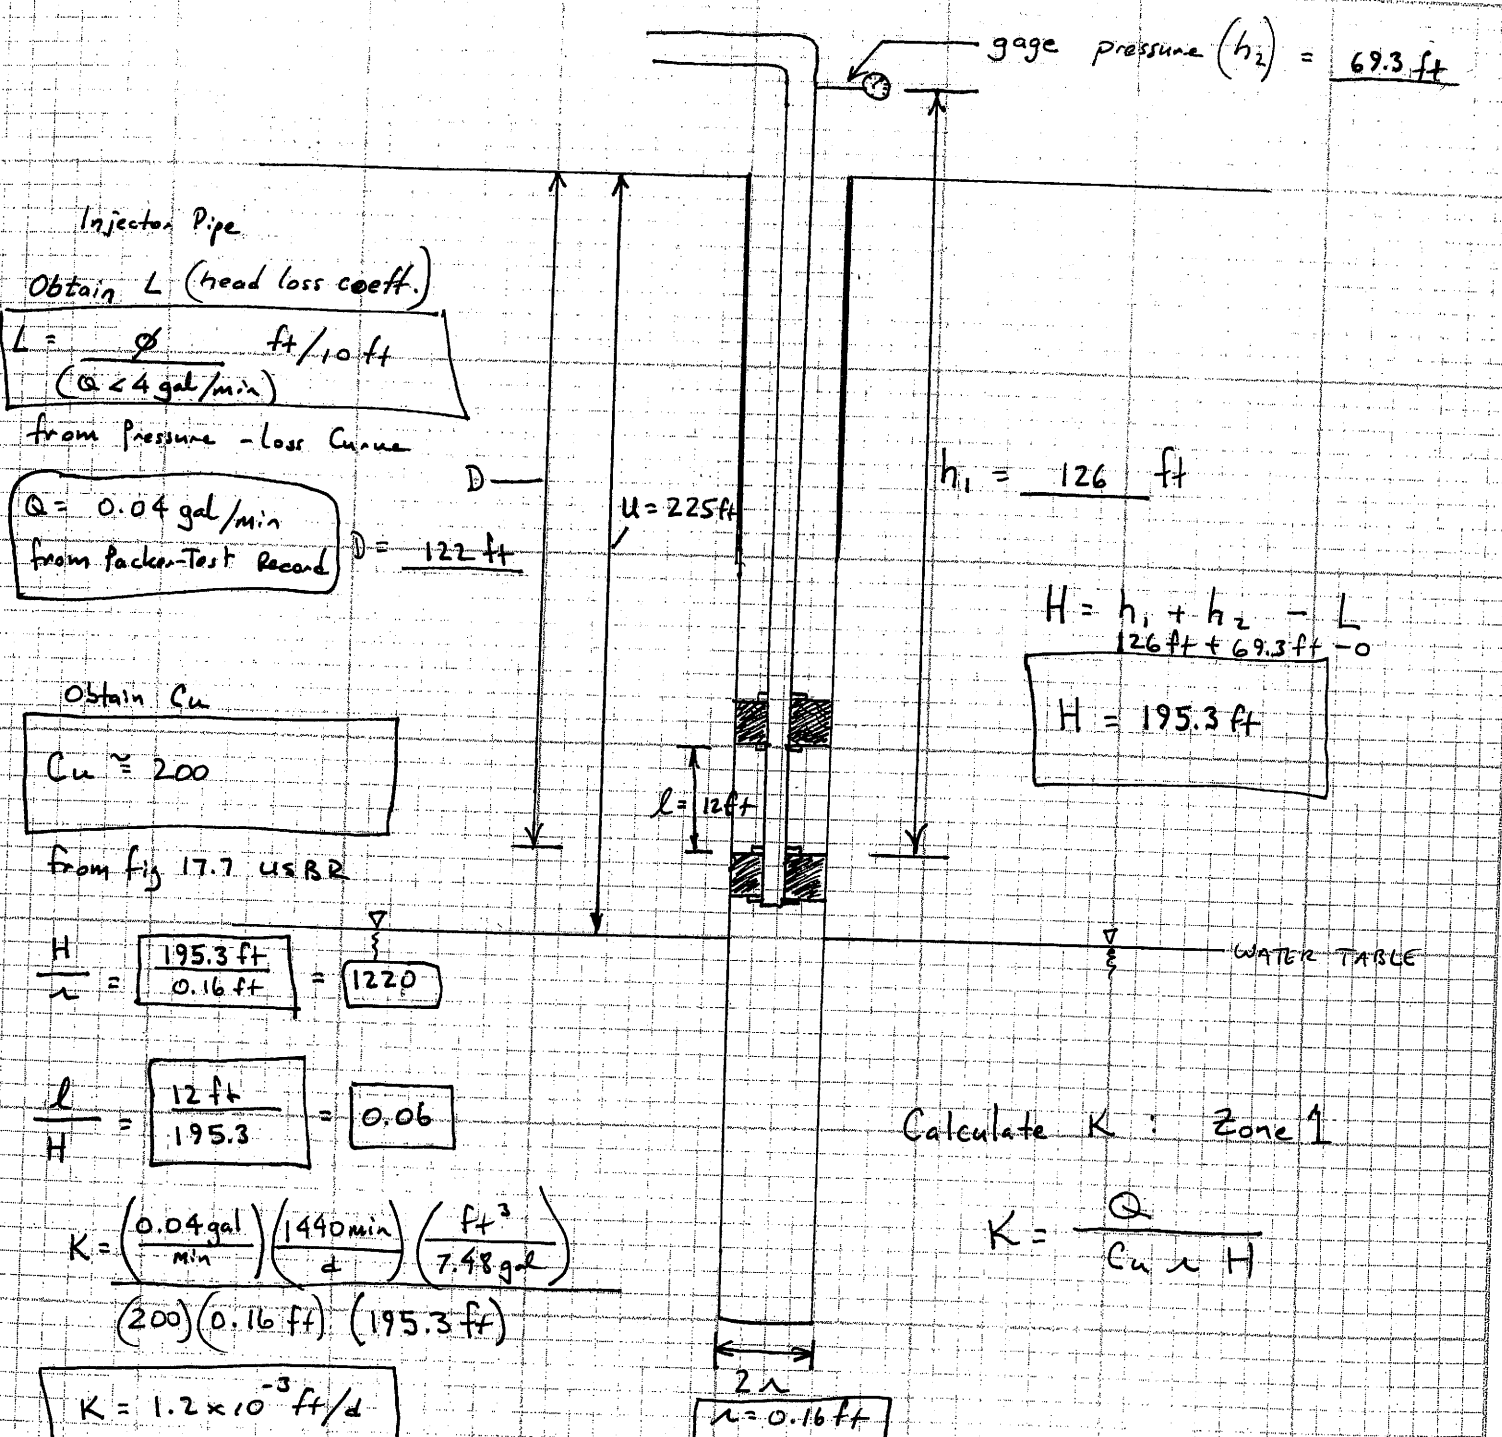 gage pressure (h₂) = 69.3 ft
Injector Pipe
Obtain L (head loss coeff.)
L = ∅ ft/10 ft
(Q < 4 gal/min)
from Pressure - Loss Curve
Q = 0.04 gal/min
from Packer-Test Record
D
D = 122 ft
u = 225 ft
h₁ = 126 ft
H = h₁ + h₂ - L
126 ft + 69.3 ft - 0
H = 195.3 ft
Obtain Cu
Cu ≅ 200
from fig 17.7 USBR
l = 12 ft
WATER TABLE
H/r = 195.3 ft/0.16 ft = 1220
l/H = 12 ft/195.3 = 0.06
Calculate K : Zone 1
K = Q/(Cu r H)
K = (0.04 gal/min)(1440 min/d)(ft³/7.48 gal)
(200)(0.16 ft) (195.3 ft)
K = 1.2 x 10⁻³ ft/d
2r
r = 0.16 ft